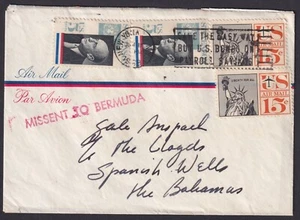 THE EASY WAY
BUY U.S. BONDS ON
PAYROLL SAVINGS
15¢
Air Mail
Par Avion
15¢
MISSENT TO BERMUDA
Gale Anspach
℅ The Lloyds
Spanish Wells
The Bahamas